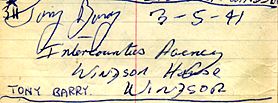 3H Tony Barry 3-5-41
Intercounties Agency
Windsor House
TONY BARRY. WINDSOR